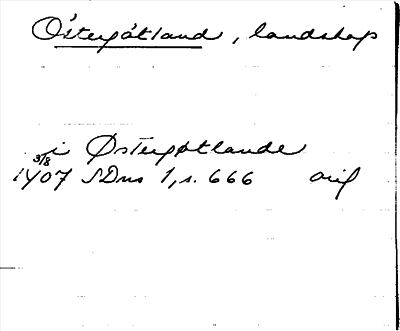 Östergötland, landskap
i Østergøtlande
3/8 1407 SDns 1, s. 666 orig